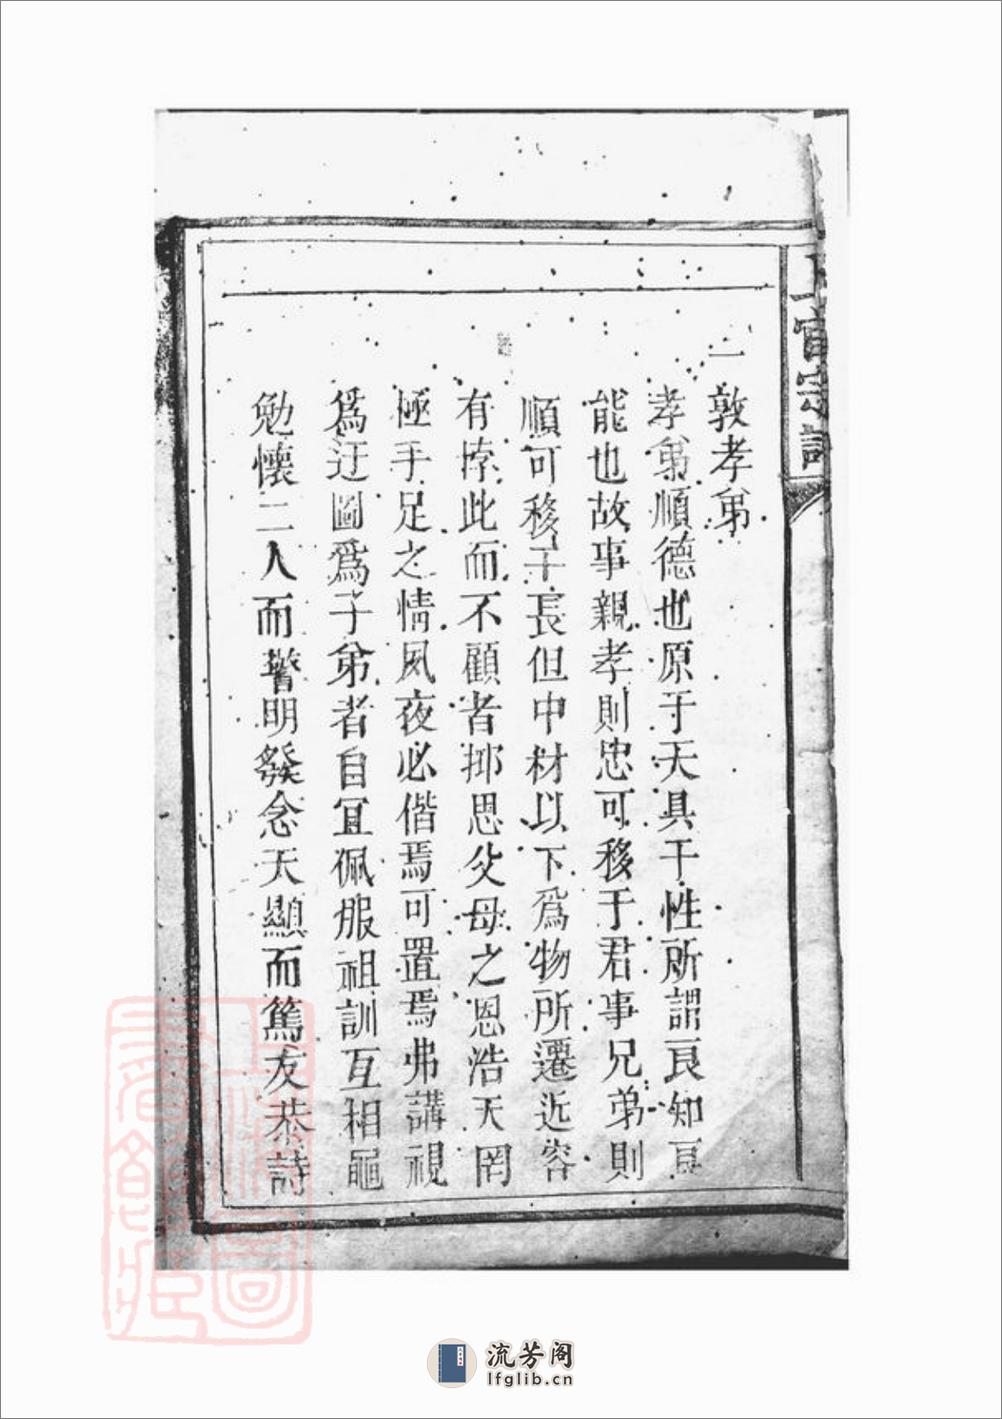 上官宗譜
一
敦孝弟
孝弟順德也原于天具于性所謂良知良
能也故事親孝則忠可移于君事兄弟則
順可移于長但中材以下爲物所遷近容
有悖此而不顧者抑思父母之恩浩天罔
極手足之情夙夜必偕焉可置焉弗講視
爲迂圖爲子弟者自宜佩服祖訓互相黽
勉懷二人而警明發念天顯而篤友恭詩
流芳阁
lfglib.cn